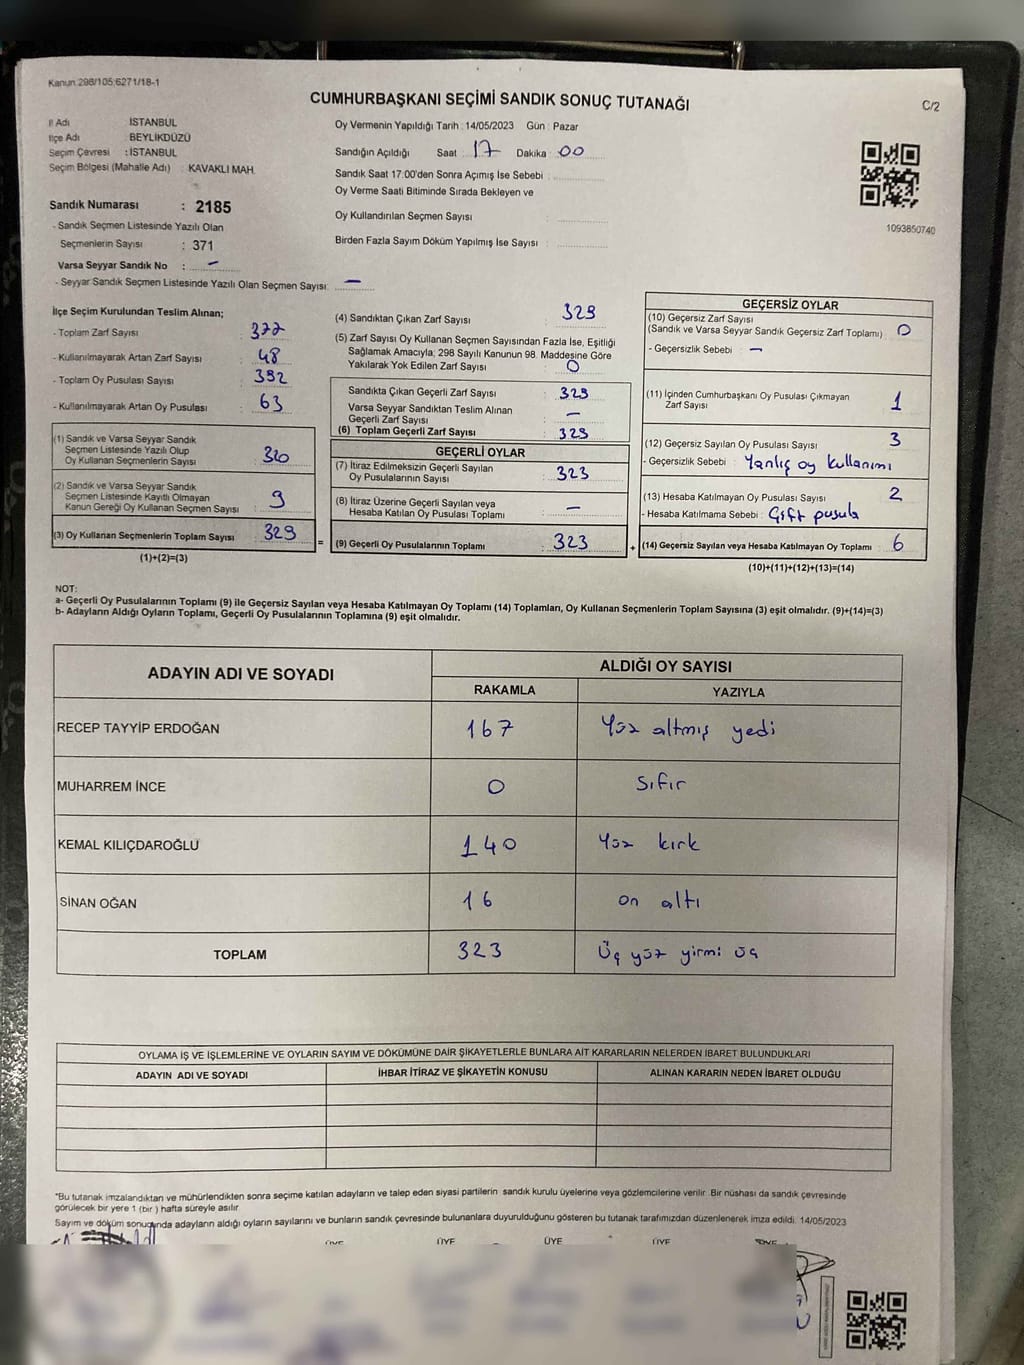 Kanun:298/105;6271/18-1
CUMHURBAŞKANI SEÇİMİ SANDIK SONUÇ TUTANAĞI
C/2
İl Adı İSTANBUL
İlçe Adı BEYLİKDÜZÜ
Seçim Çevresi : İSTANBUL
Seçim Bölgesi (Mahalle Adı) : KAVAKLI MAH.
Sandık Numarası : 2185
- Sandık Seçmen Listesinde Yazılı Olan
Seçmenlerin Sayısı : 371
Varsa Seyyar Sandık No : –
- Seyyar Sandık Seçmen Listesinde Yazılı Olan Seçmen Sayısı: –
Oy Vermenin Yapıldığı Tarih : 14/05/2023 Gün : Pazar
Sandığın Açıldığı Saat 17 Dakika 00
Sandık Saat 17:00'den Sonra Açımış İse Sebebi :
Oy Verme Saati Bitiminde Sırada Bekleyen ve
Oy Kullandırılan Seçmen Sayısı :
Birden Fazla Sayım Döküm Yapılmış İse Sayısı :
1093850740
İlçe Seçim Kurulundan Teslim Alınan;
- Toplam Zarf Sayısı : 377
- Kullanılmayarak Artan Zarf Sayısı : 48
- Toplam Oy Pusulası Sayısı : 392
- Kullanılmayarak Artan Oy Pusulası : 63
(1) Sandık ve Varsa Seyyar Sandık
Seçmen Listesinde Yazılı Olup
Oy Kullanan Seçmenlerin Sayısı : 320
(2) Sandık ve Varsa Seyyar Sandık
Seçmen Listesinde Kayıtlı Olmayan
Kanun Gereği Oy Kullanan Seçmen Sayısı : 9
(3) Oy Kullanan Seçmenlerin Toplam Sayısı : 329
(1)+(2)=(3)
=
(4) Sandıktan Çıkan Zarf Sayısı : 329
(5) Zarf Sayısı Oy Kullanan Seçmen Sayısından Fazla İse, Eşitliği
Sağlamak Amacıyla; 298 Sayılı Kanunun 98. Maddesine Göre
Yakılarak Yok Edilen Zarf Sayısı : 0
Sandıkta Çıkan Geçerli Zarf Sayısı : 329
Varsa Seyyar Sandıktan Teslim Alınan
Geçerli Zarf Sayısı : –
(6) Toplam Geçerli Zarf Sayısı : 329
GEÇERLİ OYLAR
(7) İtiraz Edilmeksizin Geçerli Sayılan
Oy Pusulalarının Sayısı : 323
(8) İtiraz Üzerine Geçerli Sayılan veya
Hesaba Katılan Oy Pusulası Toplamı : –
(9) Geçerli Oy Pusulalarının Toplamı : 323
+
GEÇERSİZ OYLAR
(10) Geçersiz Zarf Sayısı
(Sandık ve Varsa Seyyar Sandık Geçersiz Zarf Toplamı) : 0
- Geçersizlik Sebebi : –
(11) İçinden Cumhurbaşkanı Oy Pusulası Çıkmayan
Zarf Sayısı : 1
(12) Geçersiz Sayılan Oy Pusulası Sayısı : 3
- Geçersizlik Sebebi : Yanlış oy kullanımı
(13) Hesaba Katılmayan Oy Pusulası Sayısı : 2
- Hesaba Katılmama Sebebi : Çift pusula
(14) Geçersiz Sayılan veya Hesaba Katılmayan Oy Toplamı : 6
(10)+(11)+(12)+(13)=(14)
NOT:
a- Geçerli Oy Pusulalarının Toplamı (9) ile Geçersiz Sayılan veya Hesaba Katılmayan Oy Toplamı (14) Toplamları, Oy Kullanan Seçmenlerin Toplam Sayısına (3) eşit olmalıdır. (9)+(14)=(3)
b- Adayların Aldığı Oyların Toplamı, Geçerli Oy Pusulalarının Toplamına (9) eşit olmalıdır.
ADAYIN ADI VE SOYADI
ALDIĞI OY SAYISI
RAKAMLA YAZIYLA
RECEP TAYYİP ERDOĞAN 167 Yüz altmış yedi
MUHARREM İNCE 0 Sıfır
KEMAL KILIÇDAROĞLU 140 Yüz kırk
SİNAN OĞAN 16 on altı
TOPLAM 323 Üç yüz yirmi üç
OYLAMA İŞ VE İŞLEMLERİNE VE OYLARIN SAYIM VE DÖKÜMÜNE DAİR ŞİKAYETLERLE BUNLARA AİT KARARLARIN NELERDEN İBARET BULUNDUKLARI
ADAYIN ADI VE SOYADI İHBAR İTİRAZ VE ŞİKAYETİN KONUSU ALINAN KARARIN NEDEN İBARET OLDUĞU
"Bu tutanak imzalandıktan ve mühürlendikten sonra seçime katılan adayların ve talep eden siyasi partilerin sandık kurulu üyelerine veya gözlemcilerine verilir. Bir nüshası da sandık çevresinde
görülecek bir yere 1 (bir ) hafta süreyle asılır.
Sayım ve döküm sonucunda adayların aldığı oyların sayılarını ve bunların sandık çevresinde bulunanlara duyurulduğunu gösteren bu tutanak tarafımızdan düzenlenerek imza edildi. 14/05/2023
ÜYE ÜYE ÜYE ÜYE ÜYE